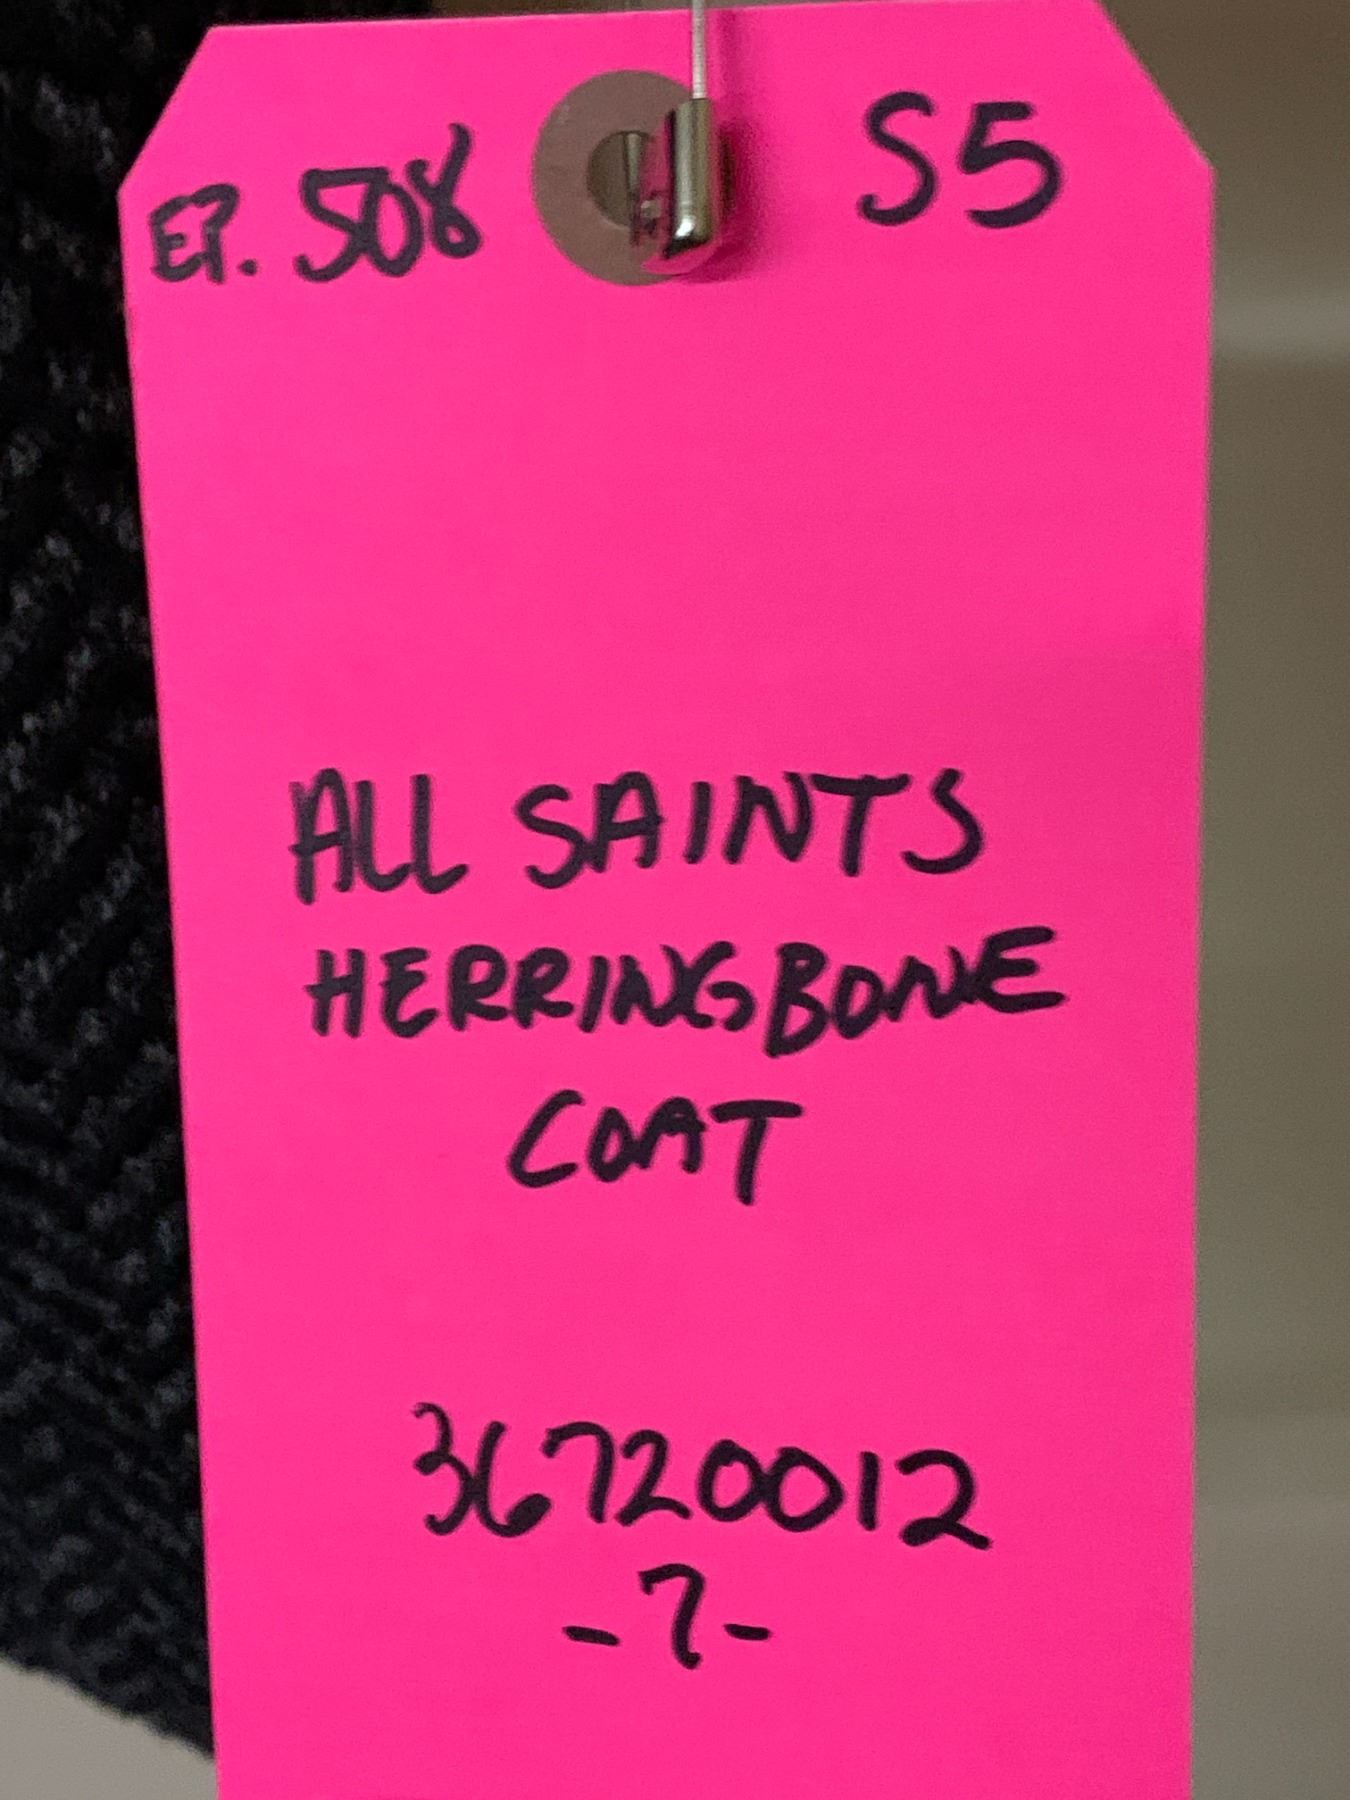 EP. 508
S5
ALL SAINTS
HERRINGBONE
COAT
36720012
-7-